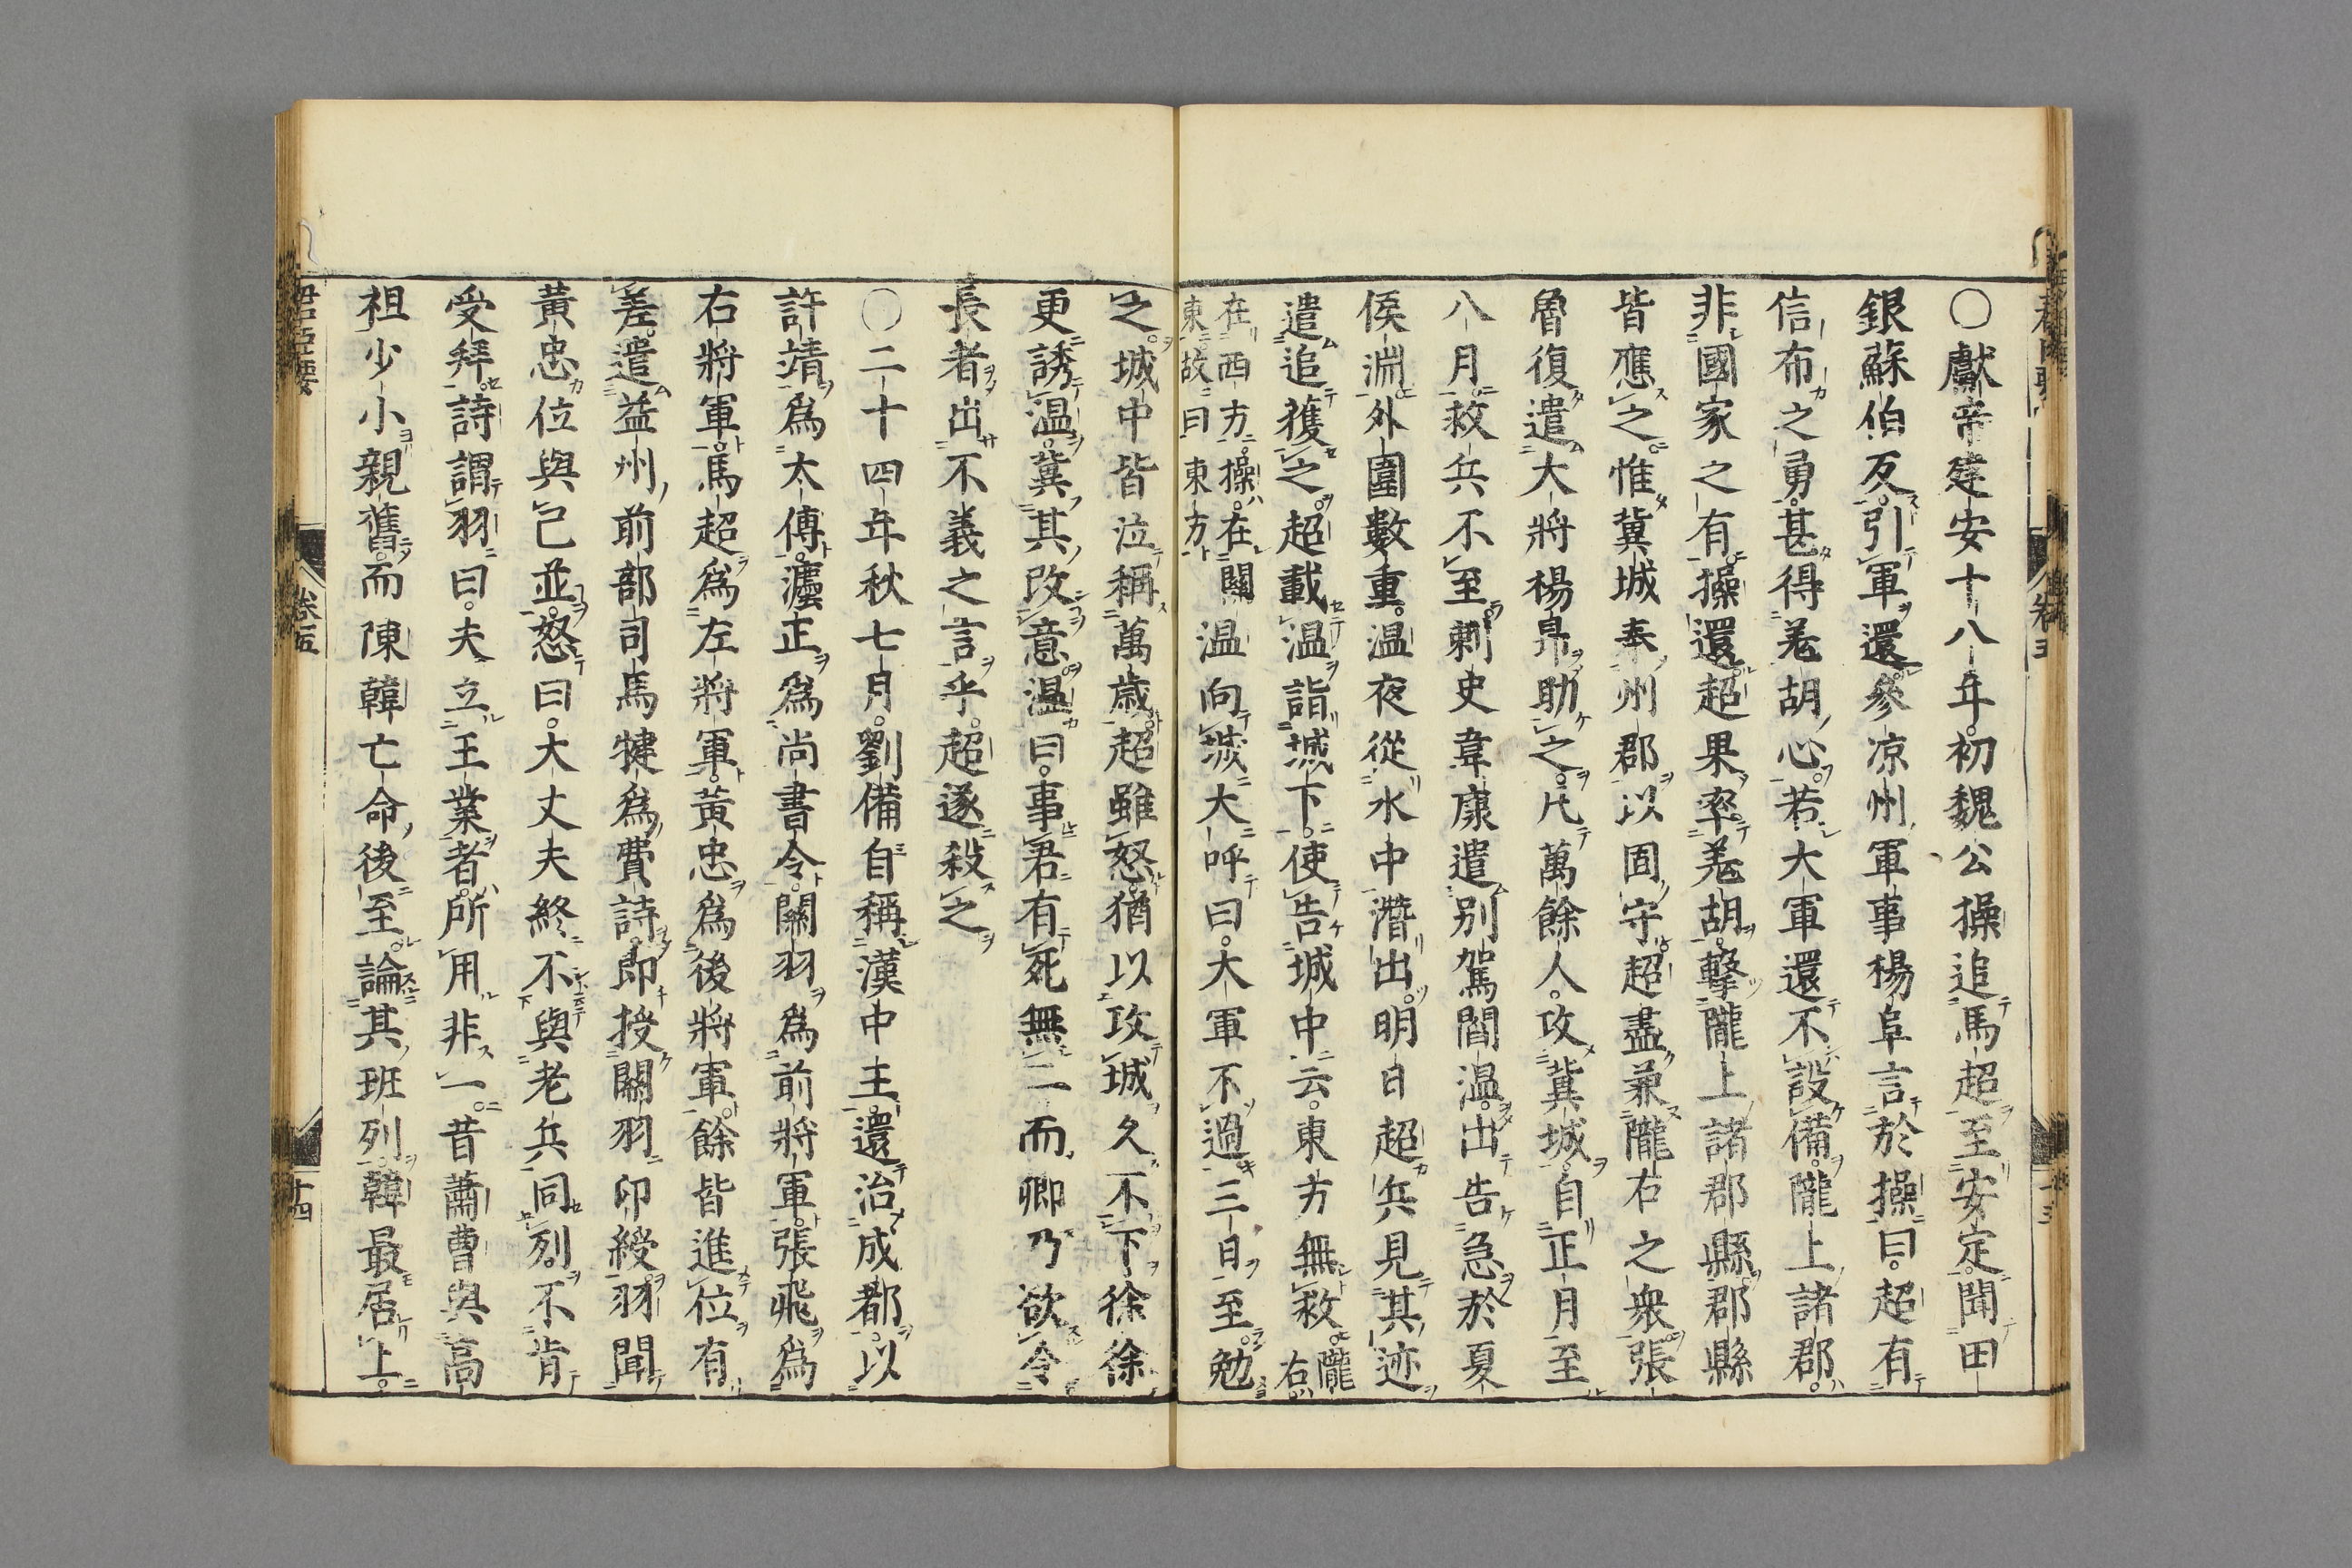 ○獻帝建安十八年。初魏公操追馬超至安定。聞田
銀蘇伯反。引軍還。參凉州軍事楊阜言於操曰。超有
信布之勇。甚得羌胡心。若大軍還不設備。隴上諸郡。
非國家之有。操還。超果率羌胡擊隴上諸郡縣。郡縣
皆應之。惟冀城奉州郡以固守。超盡兼隴右之衆。張
魯復遣大將楊昂助之。凡萬餘人。攻冀城。自正月至
八月。救兵不至。刺史韋康遣別駕閻温。出告急於夏
侯淵。外圍數重。温夜從水中潛出。明日超兵見其迹
遣追獲之。超載温詣城下。使告城中云。東方無救。隴右
在西方。操在關
東。故曰東方
温向城大呼曰。大軍不過三日至。勉
之。城中皆泣稱萬歲。超雖怒猶以攻城久不下。徐徐
更誘温。冀其改意。温曰。事君有死無二。而卿乃欲令
長者出不義之言乎。超遂殺之
○二十四年秋七月。劉備自稱漢中王。還治成都。以
許靖爲太傅。灋正爲尚書令。關羽爲前將軍。張飛爲
右將軍。馬超爲左將軍。黃忠爲後將軍。餘皆進位有
差。遣益州前部司馬犍爲費詩。即授關羽印綬。羽聞
黃忠位與己並。怒曰。大丈夫終不與老兵同列。不肯
受拜。詩謂羽曰。夫立王業者。所用非一。昔蕭曹與高
祖少小親舊。而陳韓亡命後至。論其班列。韓最居上。
君臣要
卷五
十四